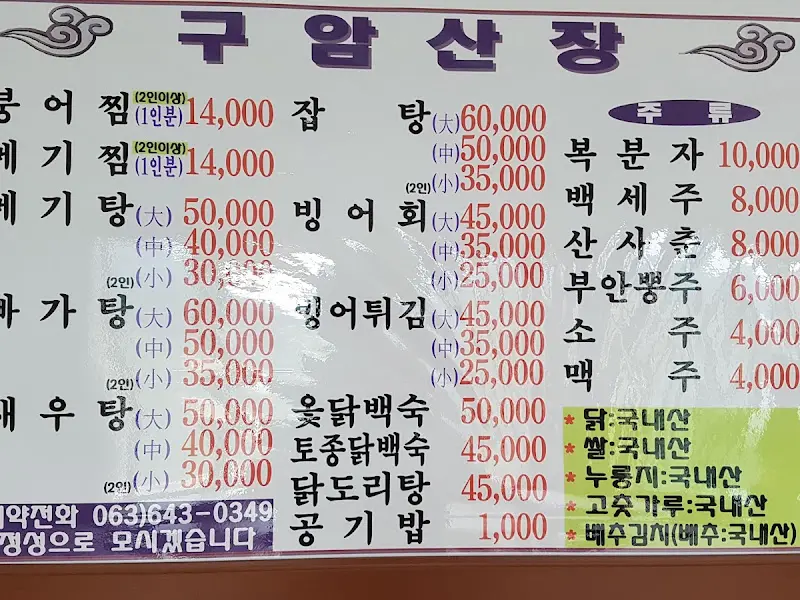 구암산장
붕어찜 (2인이상) (1인분) 14,000
메기찜 (2인이상) (1인분) 14,000
메기탕 (大) 50,000
(中) 40,000
(2인) (小) 30,000
가탕 (大) 60,000
(中) 50,000
(2인) (小) 35,000
새우탕 (大) 50,000
(中) 40,000
(2인) (小) 30,000
예약전화 063)643-0349
정성으로 모시겠습니다
잡탕 (大) 60,000
(中) 50,000
(2인) (小) 35,000
빙어회 (大) 45,000
(中) 35,000
(小) 25,000
빙어튀김 (大) 45,000
(中) 35,000
(小) 25,000
옻닭백숙 50,000
토종닭백숙 45,000
닭도리탕 45,000
공기밥 1,000
주류
복분자 10,000
백세주 8,000
산사춘 8,000
부안뽕주 6,000
소주 4,000
맥주 4,000
* 닭:국내산
* 쌀:국내산
* 누룽지:국내산
* 고춧가루:국내산
* 배추김치(배추:국내산)